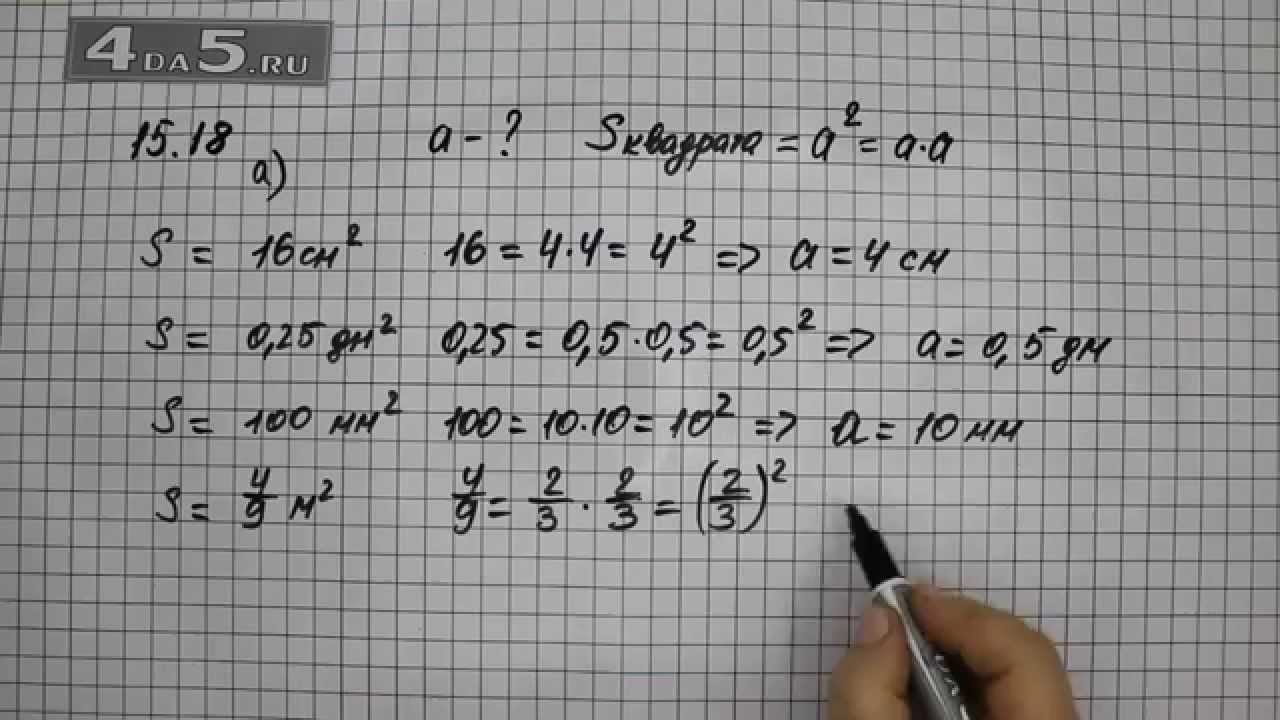 4DA5.RU
15.18 a - ? Sквадрата = a² = a·a
а)
S = 16 см² 16 = 4·4 = 4² => a = 4 см
S = 0,25 дм² 0,25 = 0,5·0,5 = 0,5² => a = 0,5 дм
S = 100 мм² 100 = 10·10 = 10² => a = 10 мм
S = 4/9 м² 4/9 = 2/3 · 2/3 = (2/3)²